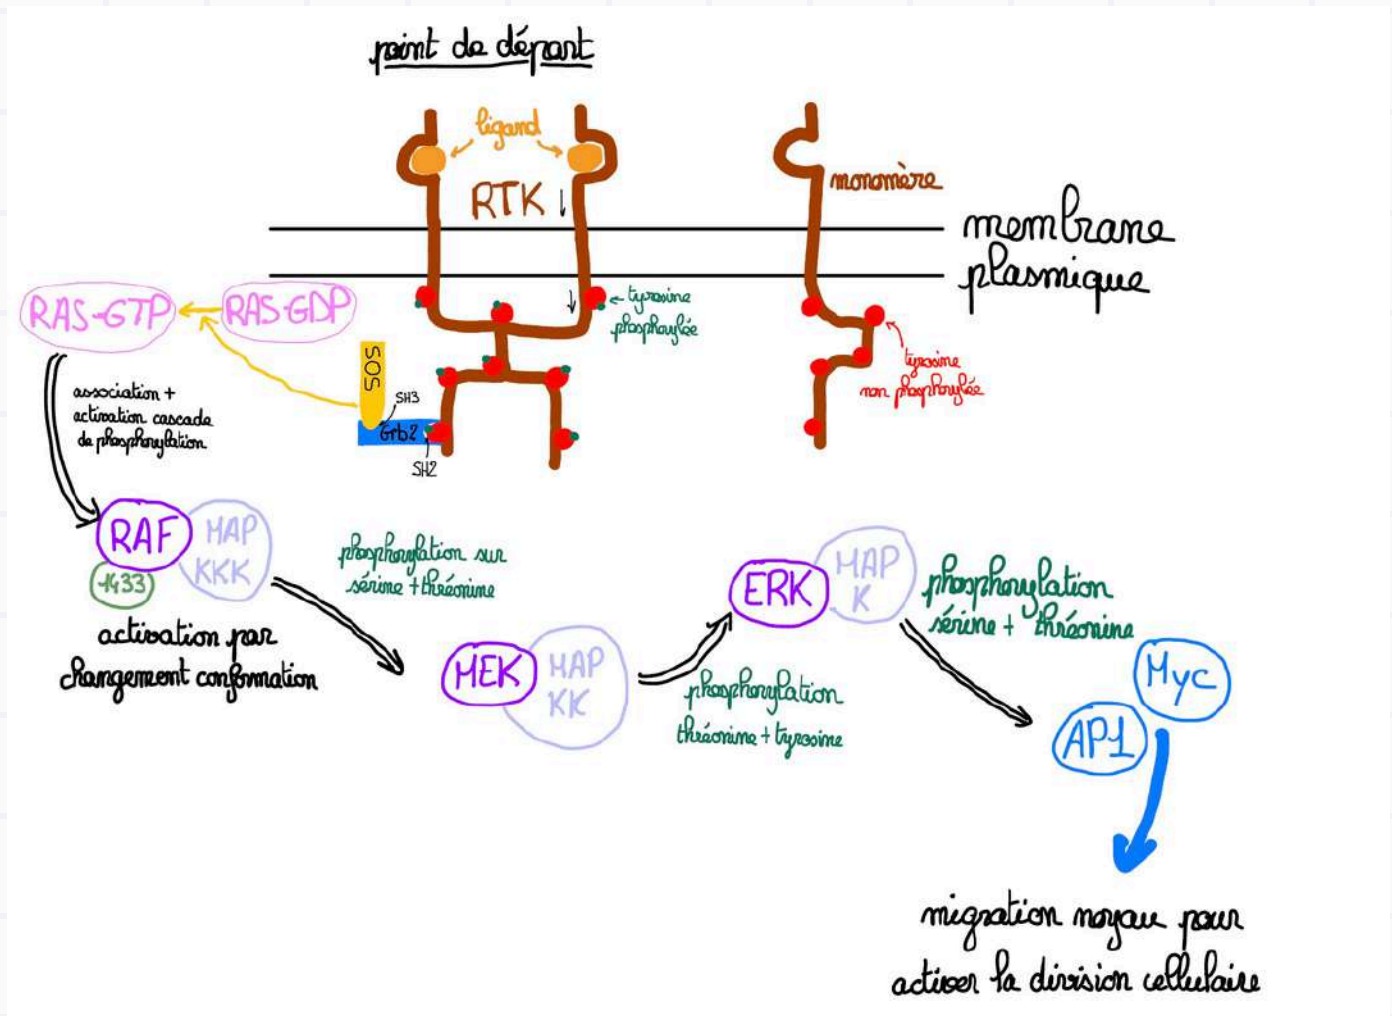 point de départ
ligand
RTK
monomère
membrane
plasmique
RAS-GTP
RAS-GDP
tyrosine
phosphorylée
tyrosine
non phosphorylée
SOS
SH3
Grb2
SH2
association +
activation cascade
de phosphorylation
RAF
MAP
KKK
1433
activation par
changement conformation
phosphorylation sur
sérine + thréonine
MEK
MAP
KK
phosphorylation
thréonine + tyrosine
ERK
MAP
K
phosphorylation
sérine + thréonine
Myc
AP1
migration noyau pour
activer la division cellulaire